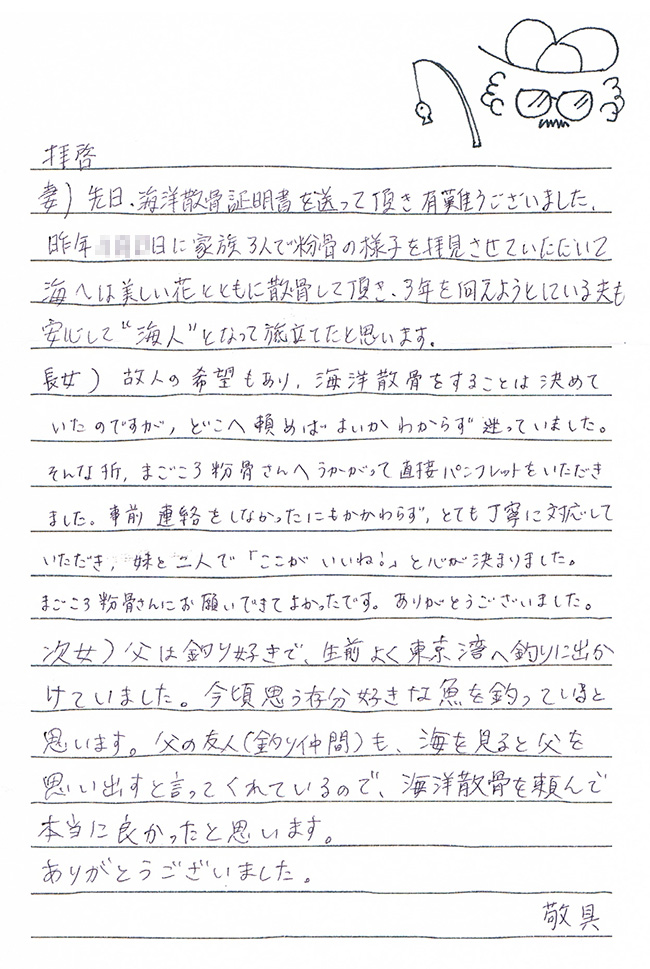 拝啓
妻）先日、海洋散骨証明書を送って頂き有難うございました、
昨年 日に家族3人で粉骨の様子を拝見させていただいて
海へは美しい花とともに散骨して頂き、3年を向えようとしている夫も
安心して“海人”となって旅立てたと思います。
長女）故人の希望もあり、海洋散骨をすることは決めて
いたのですが、どこへ頼めばよいかわからず迷っていました。
そんな折、まごころ粉骨さんへうかがって直接パンフレットをいただき
ました。事前連絡をしなかったにもかかわらず、とても丁寧に対応して
いただき、妹と二人で「ここがいいね！」と心が決まりました。
まごころ粉骨さんにお願いできてよかったです。ありがとうございました。
次女）父は釣り好きで、生前よく東京湾へ釣りに出か
けていました。今頃思う存分好きな魚を釣っていると
思います。父の友人（釣り仲間）も、海を見ると父を
思い出すと言ってくれているので、海洋散骨を頼んで
本当に良かったと思います。
ありがとうございました。
敬具